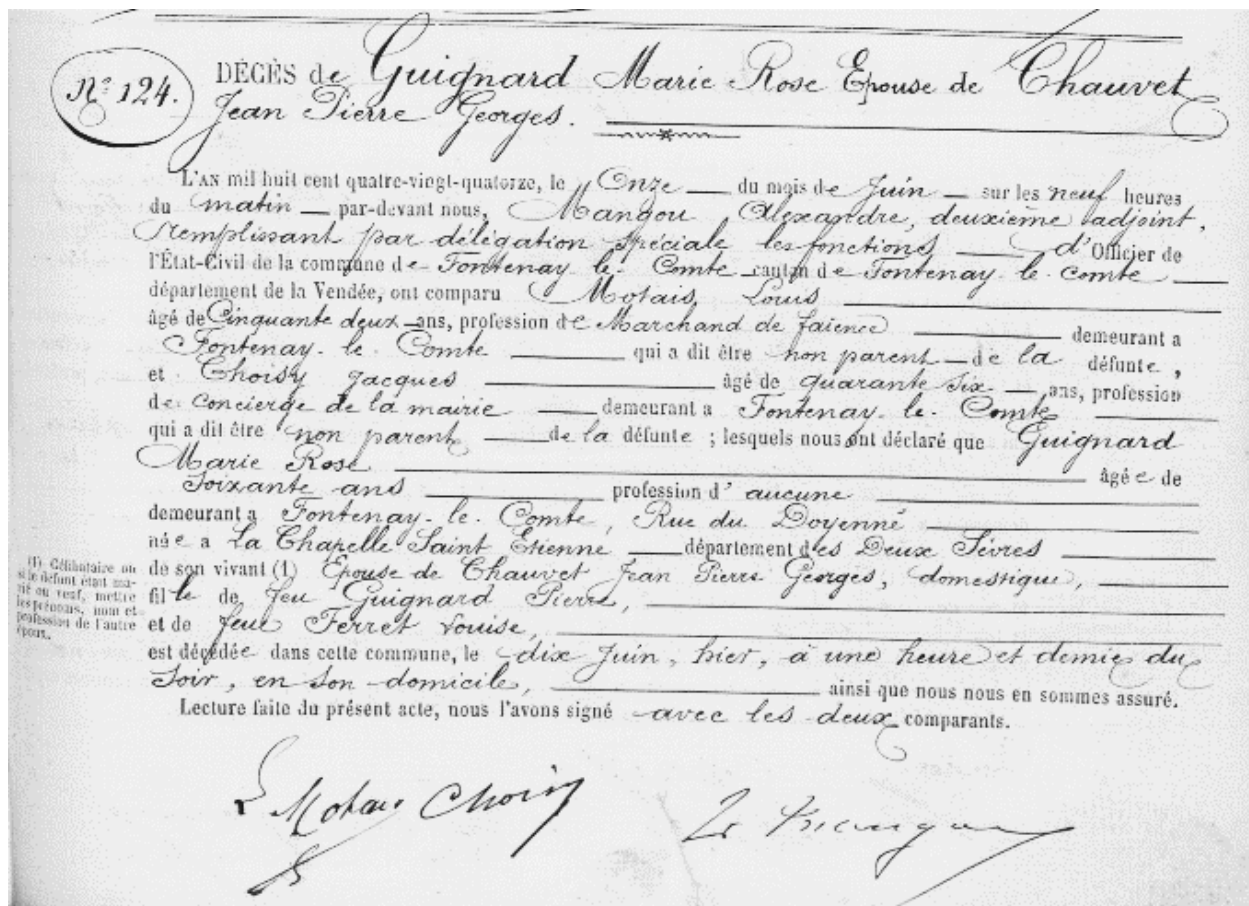 N° 124.
DÉCÈS de Guignard Marie Rose Epouse de Chauvet
Jean Pierre Georges.
L'AN mil huit cent quatre-vingt-quatorze, le Onze du mois de Juin sur les neuf heures
du matin par-devant nous, Mangou Alexandre, deuxième adjoint,
remplissant par délégation spéciale les fonctions d'Officier de
l'État-Civil de la commune de Fontenay-le-Comte canton de Fontenay-le-Comte
département de la Vendée, ont comparu Motais Louis
âgé de Cinquante deux ans, profession de Marchand de faïence demeurant a
Fontenay-le-Comte qui a dit être non parent de la défunte,
et Choisy Jacques âgé de quarante six ans, profession
de concierge de la mairie demeurant a Fontenay-le-Comte
qui a dit être non parent de la défunte ; lesquels nous ont déclaré que Guignard
Marie Rose âgée de
Soixante ans profession d'aucune
demeurant a Fontenay-le-Comte, Rue du Doyenné
née a La Chapelle Saint Etienne département des Deux Sèvres
de son vivant (1) Epouse de Chauvet Jean Pierre Georges, domestique,
fille de feu Guignard Pierre,
et de feue Ferret Louise,
est décédée dans cette commune, le dix Juin, hier, à une heure et demie du
Soir, en son domicile, ainsi que nous nous en sommes assuré.
Lecture faite du présent acte, nous l'avons signé avec les deux comparants.
(1) Célibataire ou
si le défunt était ma-
rié ou veuf, mettre
les prénoms, nom et
profession de l'autre
époux.
L Motais Choisy
Mangou